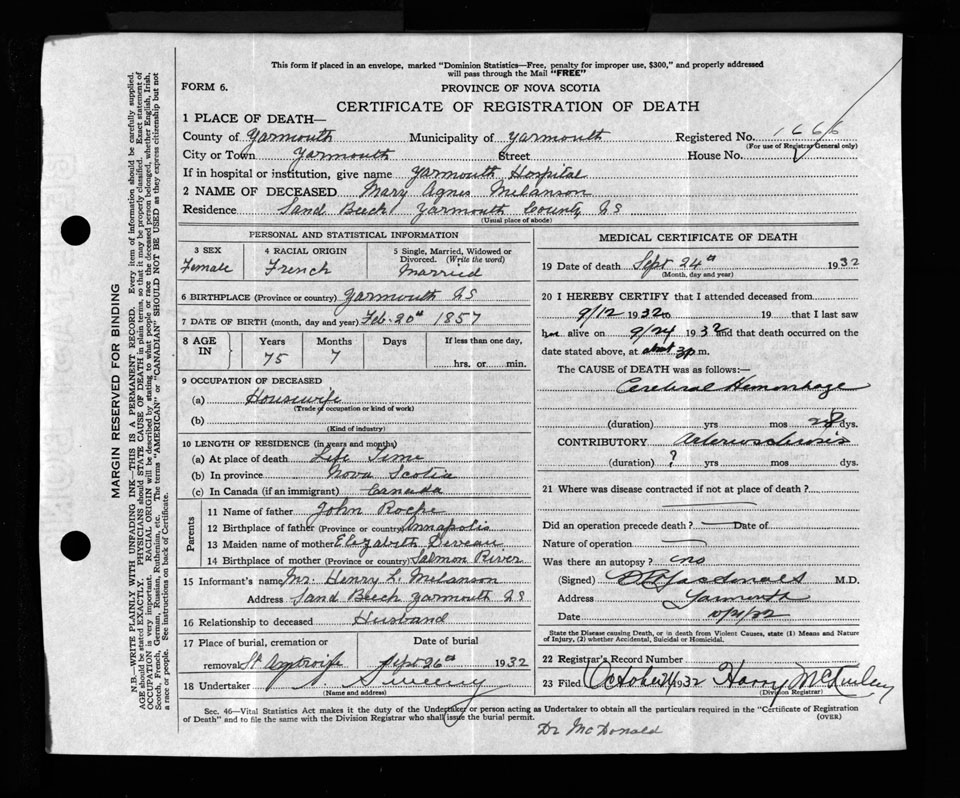 This form if placed in an envelope, marked "Dominion Statistics—Free, penalty for improper use, $300," and properly addressed
will pass through the Mail "FREE"
FORM 6.
PROVINCE OF NOVA SCOTIA
CERTIFICATE OF REGISTRATION OF DEATH
1 PLACE OF DEATH—
County of Yarmouth Municipality of Yarmouth Registered No. 1666
(For use of Registrar General only)
City or Town Yarmouth Street House No.
If in hospital or institution, give name Yarmouth Hospital
2 NAME OF DECEASED Mary Agnes Melanson
Residence Sand Beech Yarmouth County NS
(Usual place of abode)
PERSONAL AND STATISTICAL INFORMATION
3 SEX 4 RACIAL ORIGIN 5 Single, Married, Widowed or
Divorced. (Write the word)
Female French Married
6 BIRTHPLACE (Province or country) Yarmouth NS
7 DATE OF BIRTH (month, day and year) Feb. 20th 1857
8 AGE IN Years Months Days If less than one day,
75 7 hrs. or min.
9 OCCUPATION OF DECEASED
(a) Housewife
(Trade of occupation or kind of work)
(b)
(Kind of industry)
10 LENGTH OF RESIDENCE (in years and months)
(a) At place of death Life Time
(b) In province Nova Scotia
(c) In Canada (if an immigrant) Canada
Parents
11 Name of father John
12 Birthplace of father (Province or country) Annapolis
13 Maiden name of mother Elizabeth Deveau
14 Birthplace of mother (Province or country) Salmon River
15 Informant's name Mr. Henry L. Melanson
Address Sand Beech Yarmouth NS
16 Relationship to deceased Husband
17 Place of burial, cremation or Date of burial
removal St Sept 26th 1932
18 Undertaker Sweeny
(Name and address)
MEDICAL CERTIFICATE OF DEATH
19 Date of death Sept 24th 1932
(Month, day and year)
20 I HEREBY CERTIFY that I attended deceased from
9/12 1932 to 19 that I last saw
her alive on 9/24 1932 and that death occurred on the
date stated above, at about 3 p m.
The CAUSE of DEATH was as follows:—
Cerebral Hemorrhage
(duration) yrs mos dys.
CONTRIBUTORY Arteriosclerosis
(duration) ? yrs mos dys.
21 Where was disease contracted if not at place of death?
Did an operation precede death? — Date of
Nature of operation —
Was there an autopsy? no
(Signed) Macdonald M.D.
Address Yarmouth
Date
State the Disease causing Death, or in death from Violent Causes, state (1) Means and Nature
of Injury, (2) whether Accidental, Suicidal or Homicidal.
22 Registrar's Record Number
23 Filed October 1932 Harry
(Division Registrar)
Sec. 46—Vital Statistics Act makes it the duty of the Undertaker or person acting as Undertaker to obtain all the particulars required in the "Certificate of Registration
of Death" and to file the same with the Division Registrar who shall issue the burial permit. (OVER)
Dr McDonald
MARGIN RESERVED FOR BINDING
N.B.—WRITE PLAINLY WITH UNFADING INK—THIS IS A PERMANENT RECORD. Every item of information should be carefully supplied.
AGE should be stated EXACTLY. PHYSICIANS should STATE CAUSE OF DEATH in plain terms, so that it may be properly classified. Exact statement of
OCCUPATION is very important. RACIAL ORIGIN will be described by stating to what people or race the deceased person belonged, whether English, Irish,
Scotch, French, German, Russian, Ruthenian, etc. The terms "AMERICAN" or "CANADIAN" SHOULD NOT BE USED as they express citizenship but not
a race or people. See instructions on back of Certificate.